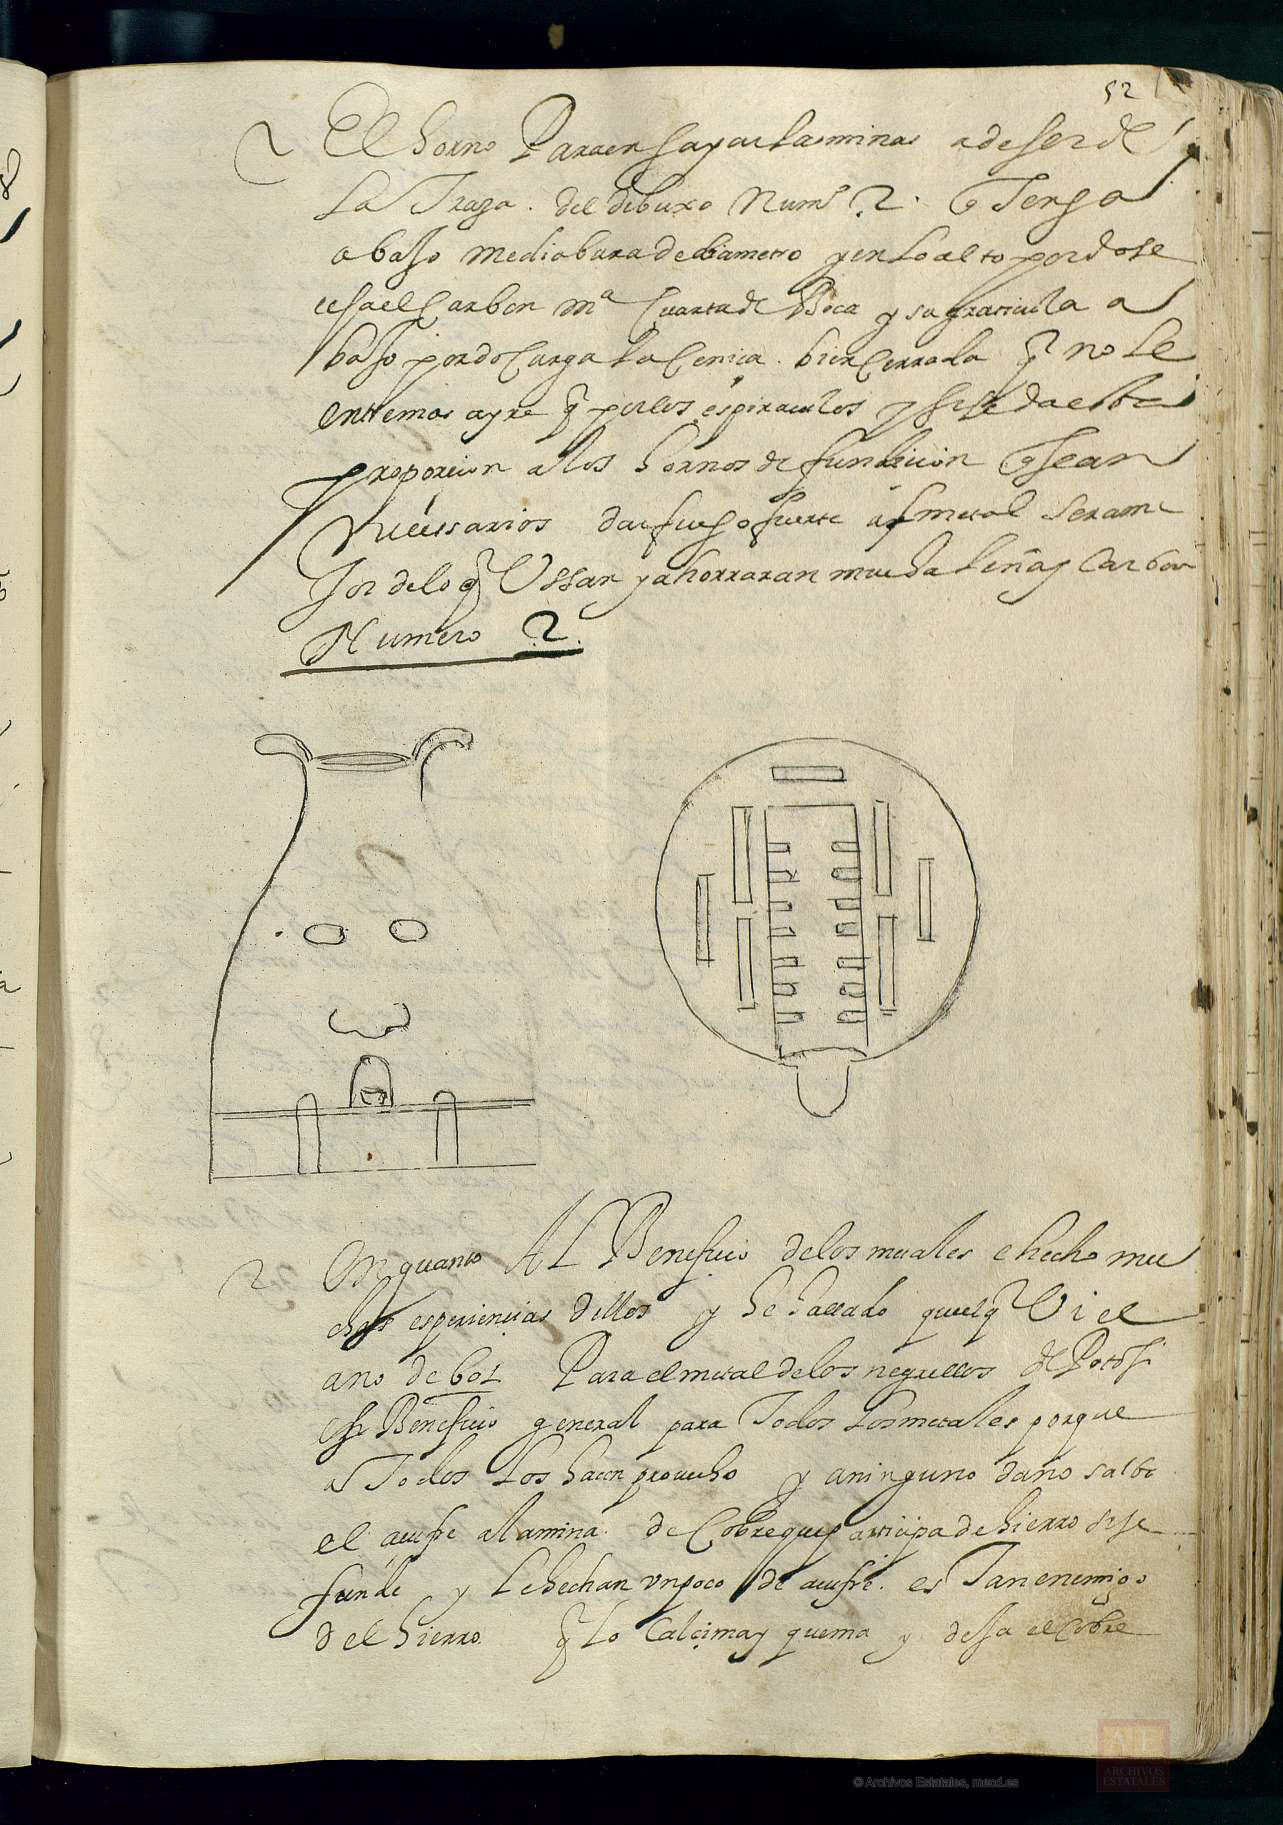 52
El horno Para ensayar las minas a de ser de
La Traza. del dibuxo Num° 2. q Tenga
abaJo media bara de diametro y en lo alto por do se
el carbon mª Cuarta de Boca y su graticula a
baJo por do Carga la Ceniça. bien Cerrada q no le
entre mas ayre q por los espiraculos y si se da esta
proporcion a los hornos de fundicion q sean
Necessarios dar fuego fuerte al metal seran me
Jor de lo q Ussan y ahorraran mucha Leña y Carbon
Numero 2.
En quanto Al Beneficio de los metales e hecho mu
chas esperiencias dellos y he hallado que el q Vi el
ano de 601 Para el metal de los negrillos de Potosi
es Beneficio general para Todos los metales porque
a Todos los hacen provecho y a ninguno daño salbo
el acufre a la mina. de Cobre que participa de hierro si se
funde y le hechan un poco de acufre. es Tan enemigo
del hierro. q lo Calcina y quema y desa el Cobre
© Archivos Estatales, mecd.es
AE
ARCHIVOS
ESTATALES